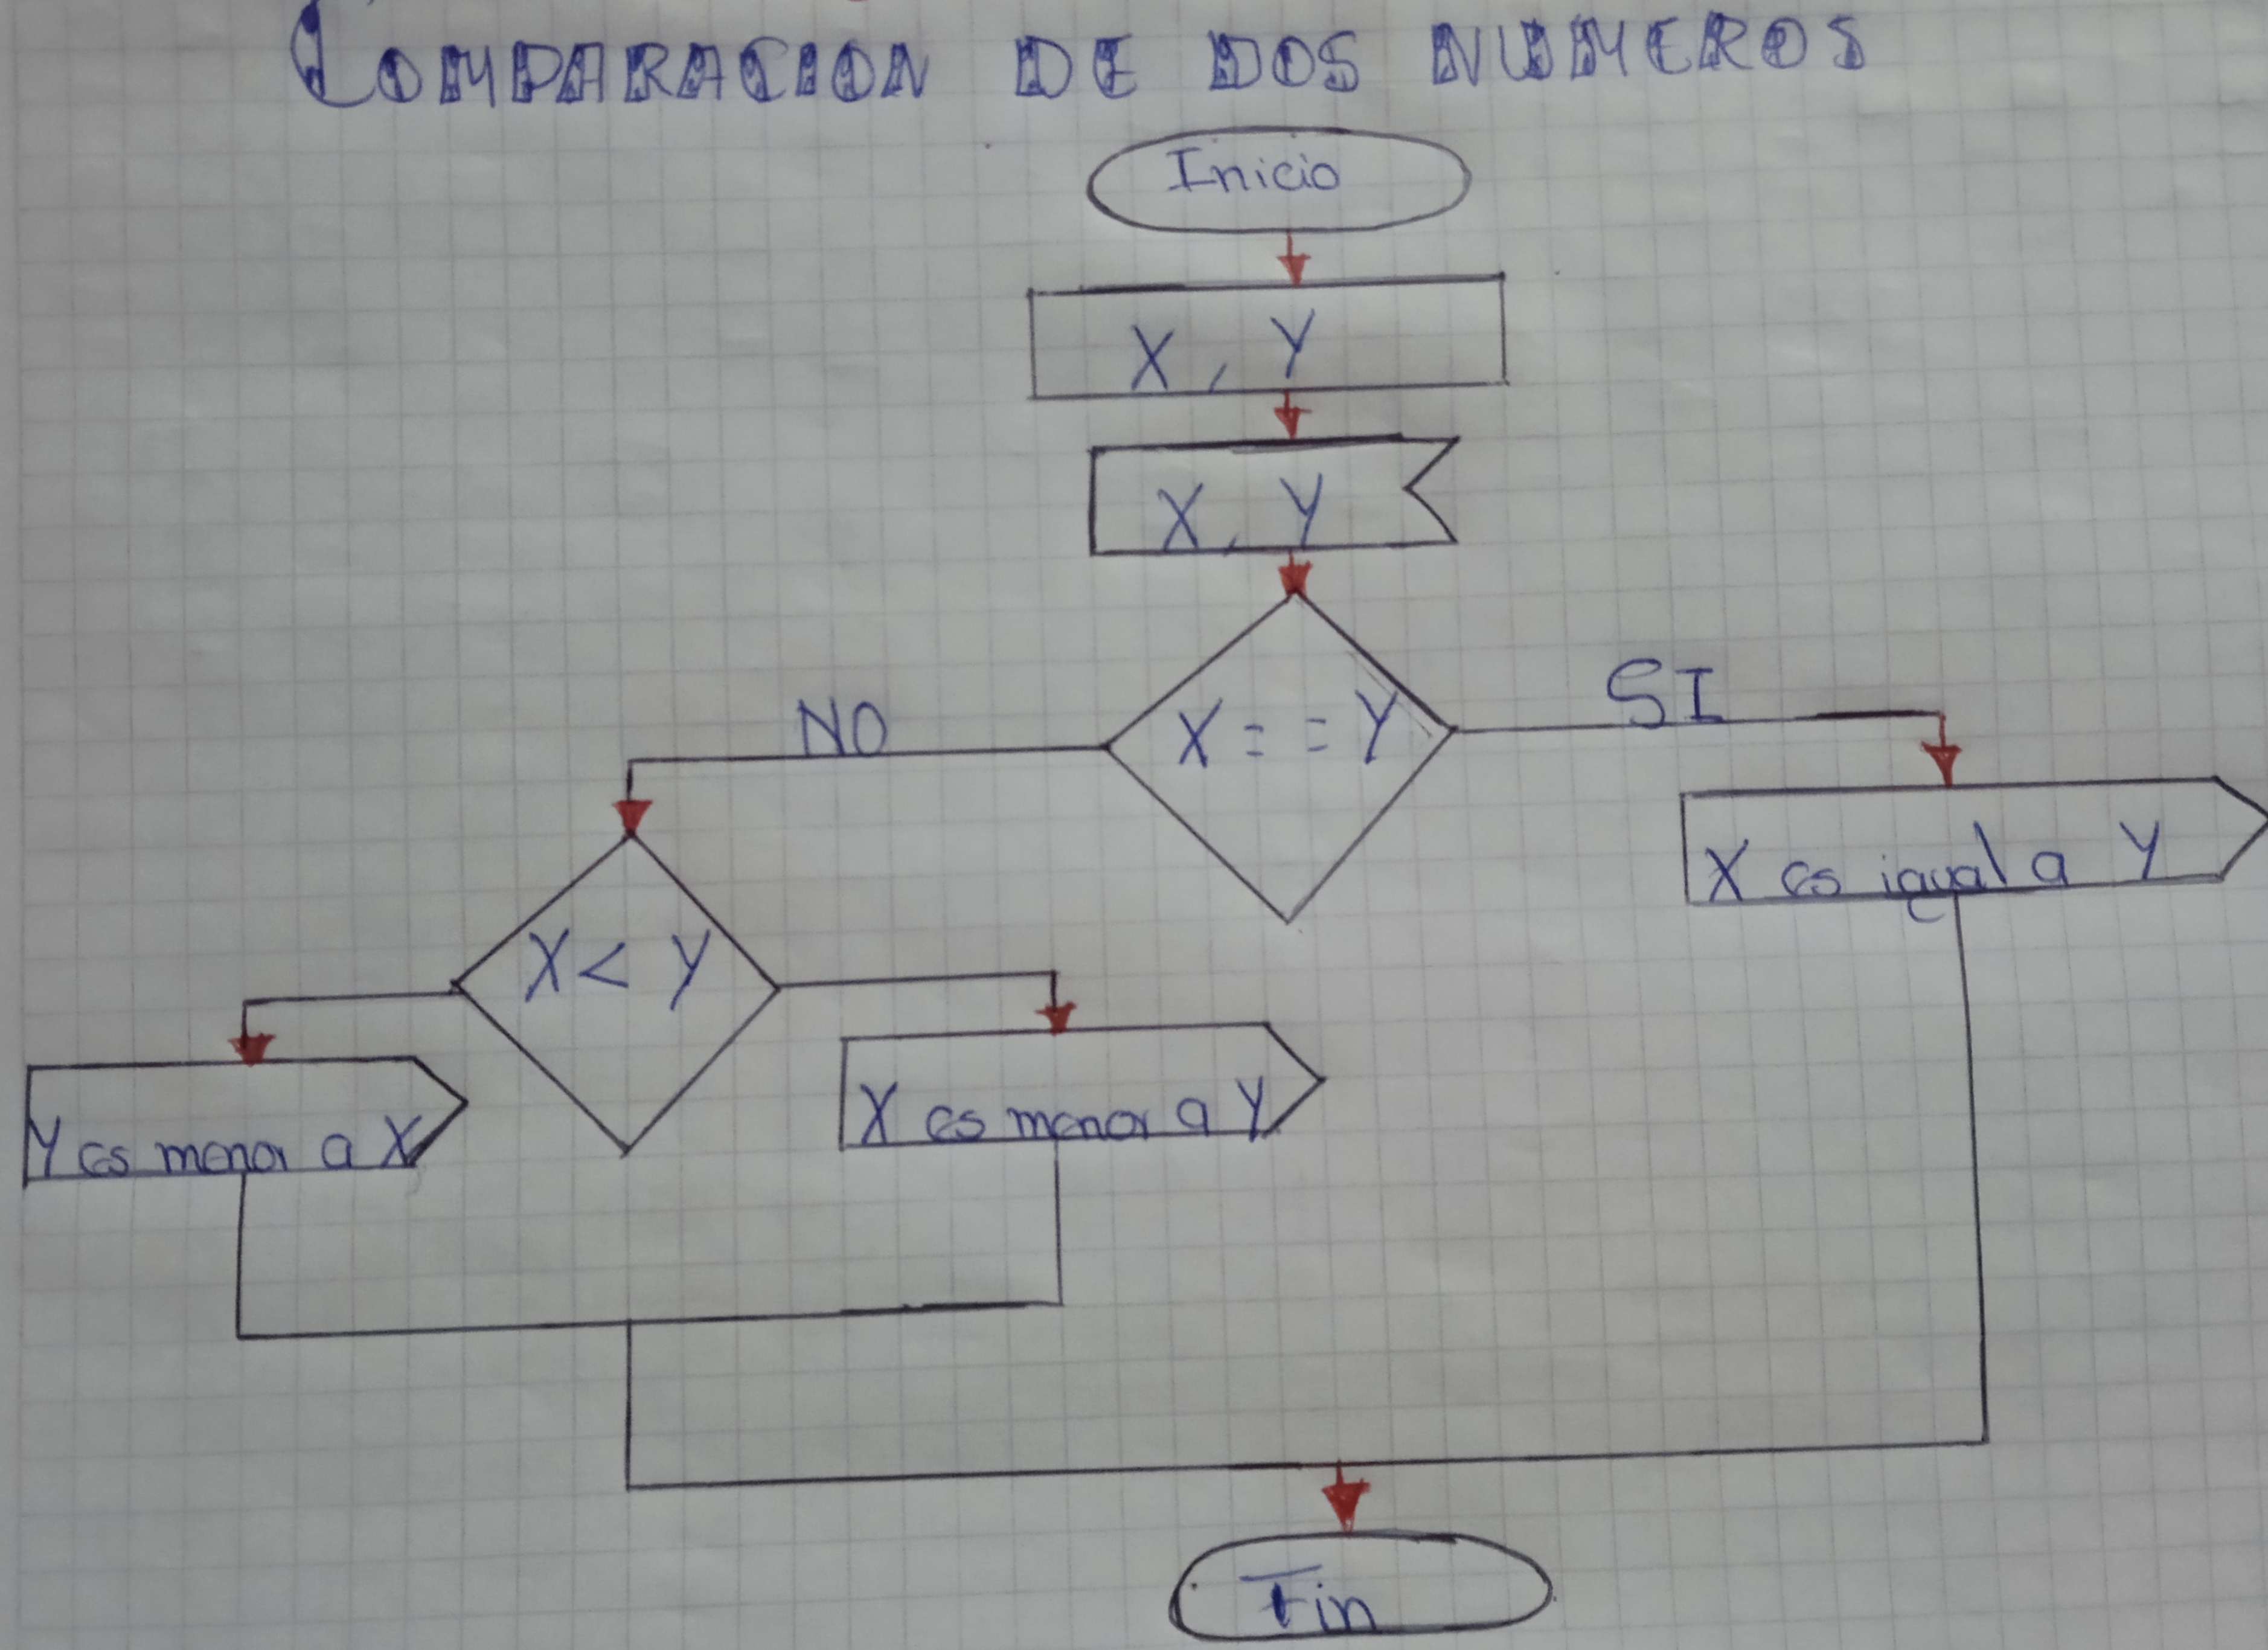 COMPARACION DE DOS NUMEROS
Inicio
X, Y
X, Y
X = = Y
NO
SI
X es igual a Y
X < Y
Y es menor a X
X es menor a Y
Fin